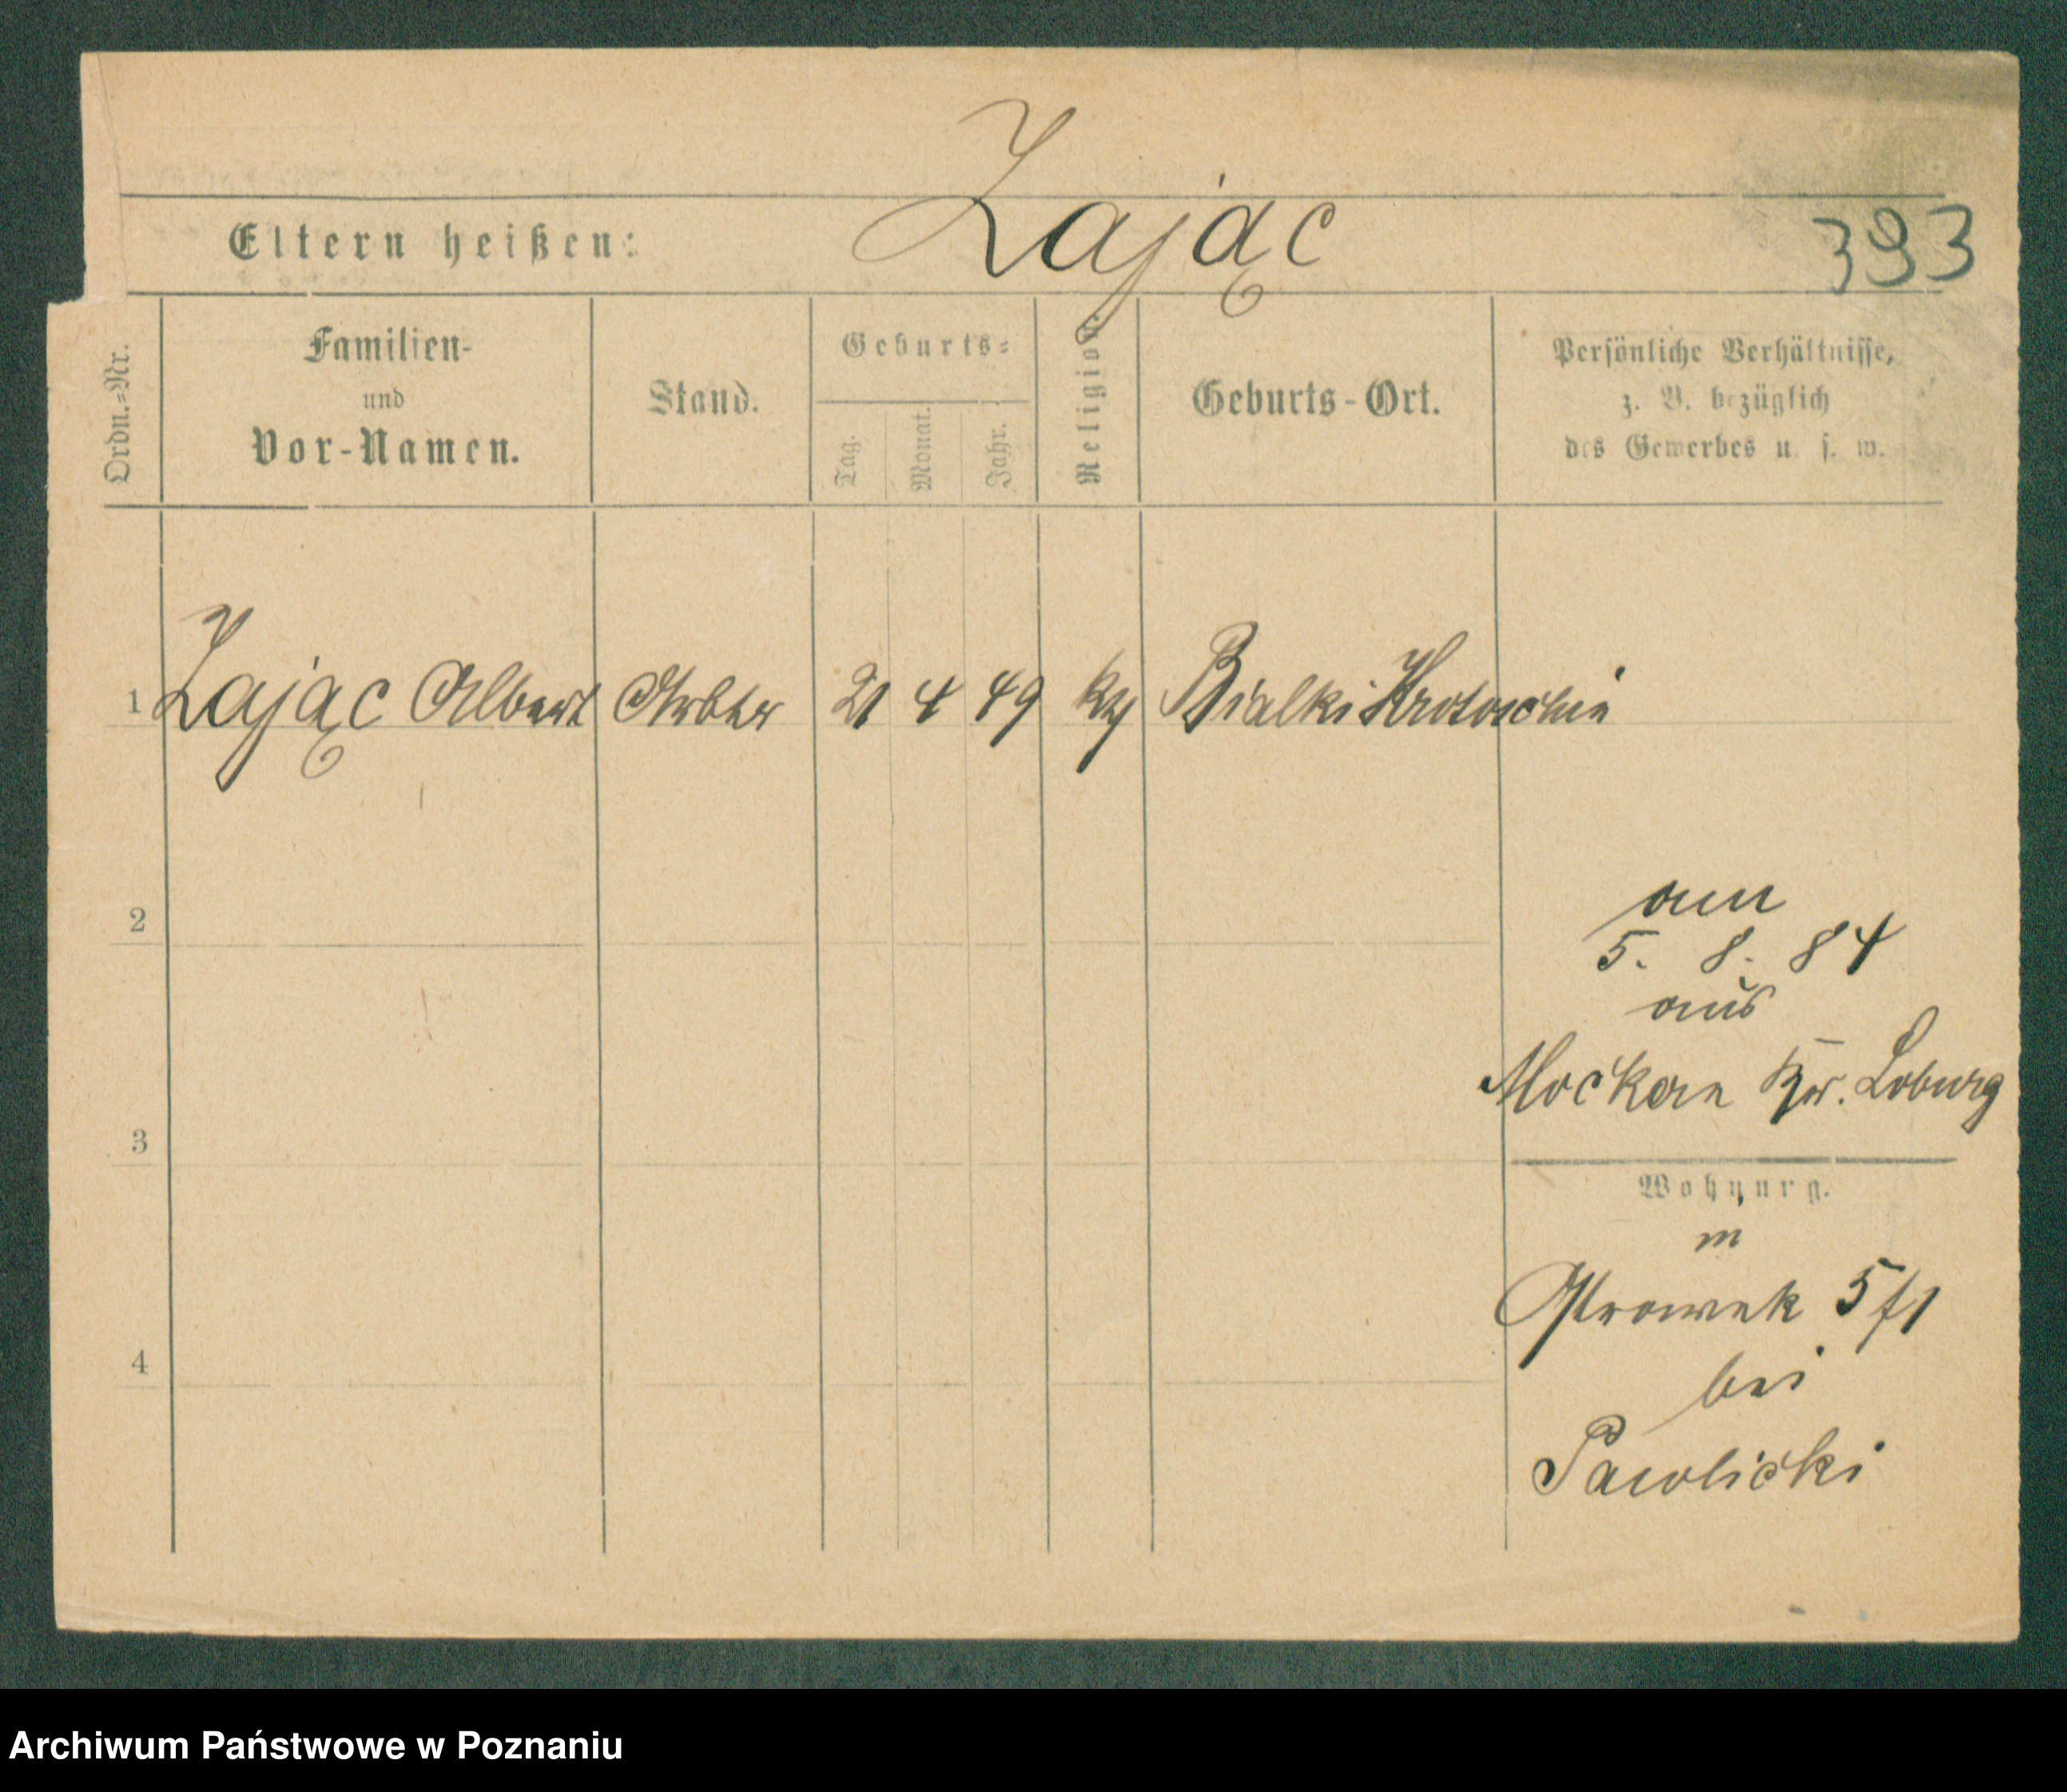 Zając
Eltern heißen:
393
Ordn.-Nr.
Familien-
und
Vor-Namen.
Stand.
Geburts-
Tag.
Monat.
Jahr.
Religion.
Geburts-Ort.
Persönliche Verhältnisse,
z. B. bezüglich
des Gewerbes u. s. w.
1 Zając Albert Arbter 21 4 49 Bialki Krotoschin
2
am
5. 8. 84
aus
Mockern Loburg
3
Wohnung.
in
Ostrowek 5/1
4
bei
Pawlicki
Archiwum Państwowe w Poznaniu